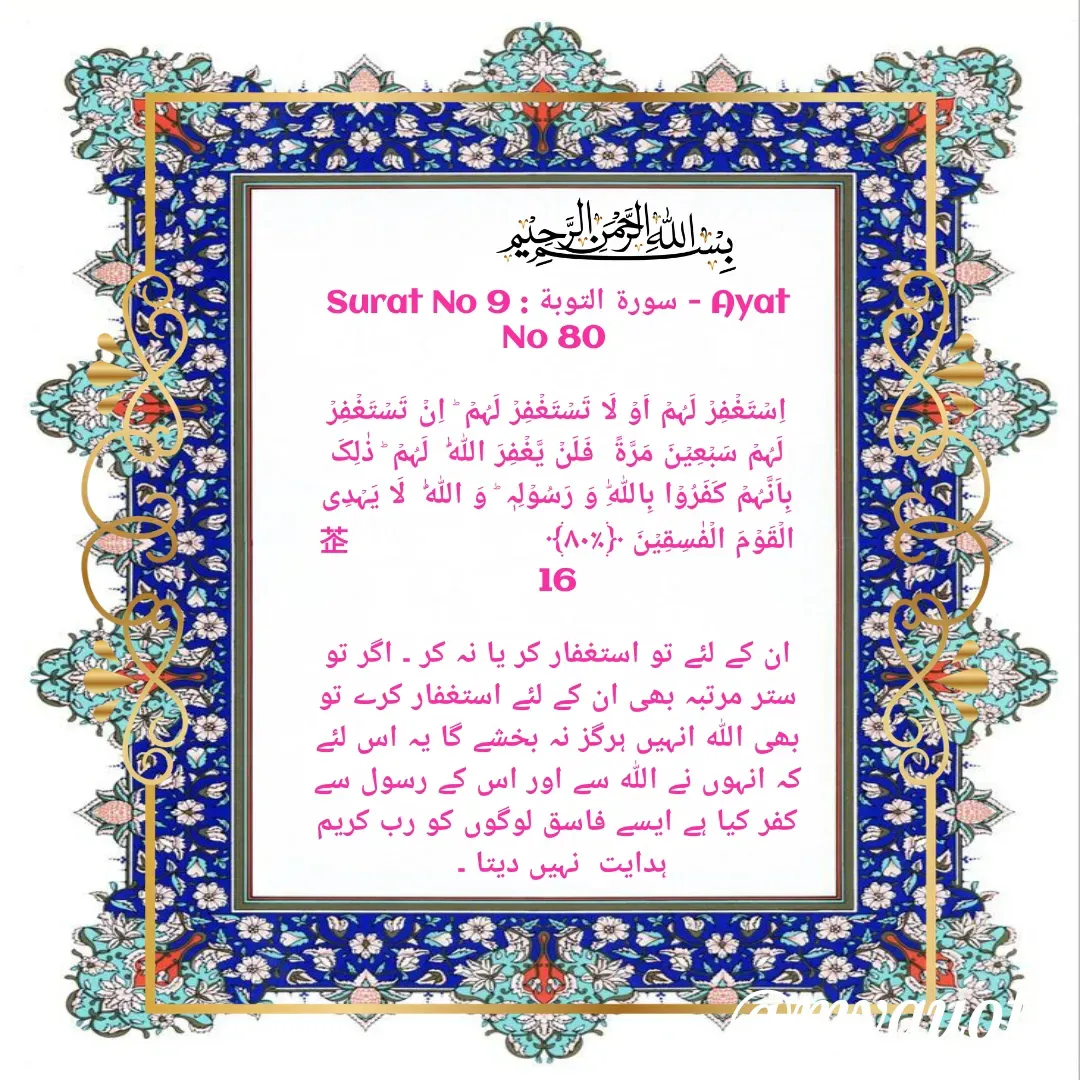 بِسْمِ اللهِ الرَّحْمٰنِ الرَّحِيْمِ
Surat No 9 : سورة التوبة - Ayat
No 80
اِسۡتَغۡفِرۡ لَہُمۡ اَوۡ لَا تَسۡتَغۡفِرۡ لَہُمۡ ؕ اِنۡ تَسۡتَغۡفِرۡ
لَہُمۡ سَبۡعِیۡنَ مَرَّۃً فَلَنۡ یَّغۡفِرَ اللّٰہُ لَہُمۡ ؕ ذٰلِکَ
بِاَنَّہُمۡ کَفَرُوۡا بِاللّٰہِ وَ رَسُوۡلِہٖ ؕ وَ اللّٰہُ لَا یَہۡدِی
الۡقَوۡمَ الۡفٰسِقِیۡنَ ﴿۸۰﴾٪
16
ان کے لئے تو استغفار کر یا نہ کر ۔ اگر تو
ستر مرتبہ بھی ان کے لئے استغفار کرے تو
بھی اللہ انہیں ہرگز نہ بخشے گا یہ اس لئے
کہ انہوں نے اللہ سے اور اس کے رسول سے
کفر کیا ہے ایسے فاسق لوگوں کو رب کریم
ہدایت نہیں دیتا ۔